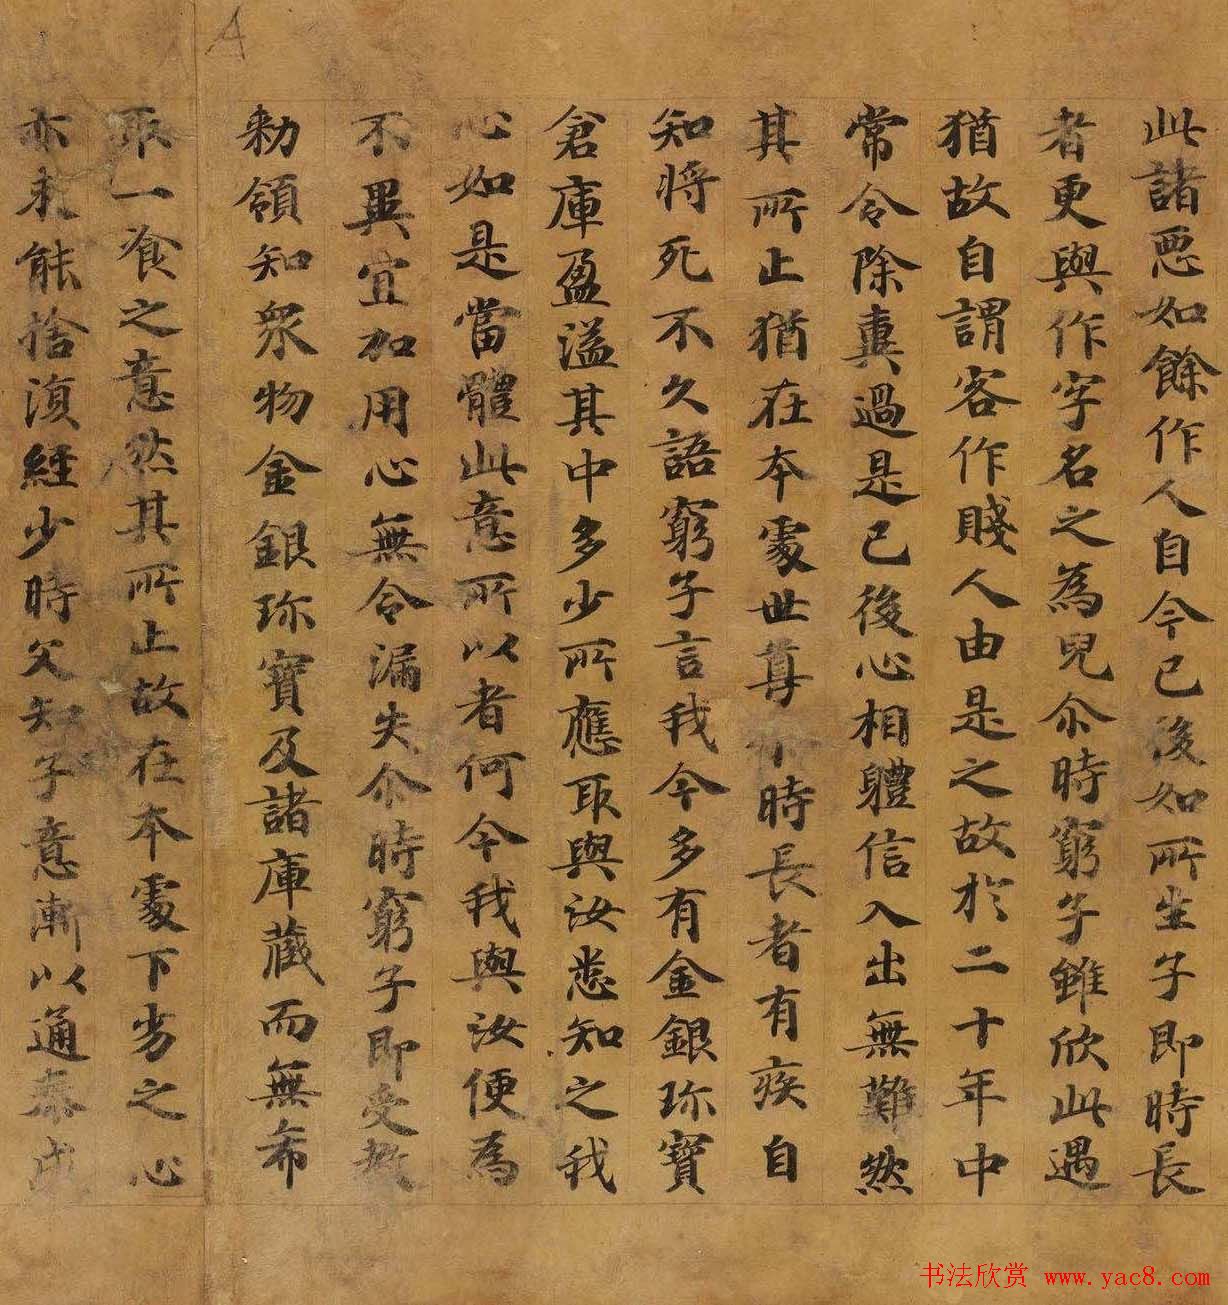 此諸惡如餘作人自今已後如所生子即時長
者更與作字名之為兒尒時窮子雖欣此遇
猶故自謂客作賤人由是之故於二十年中
常令除糞過是已後心相軆信入出無難然
其所止猶在本處世尊尒時長者有疾自
知將死不久語窮子言我今多有金銀珎寶
倉庫盈溢其中多少所應取與汝悉知之我
心如是當體此意所以者何今我與汝便為
不異宜加用心無令漏失尒時窮子即受教
勑領知眾物金銀珎寶及諸庫藏而無希
取一飡之意然其所止故在本處下劣之心
亦未能捨復經少時父知子意漸以通泰成
A
书法欣赏 www.yac8.com